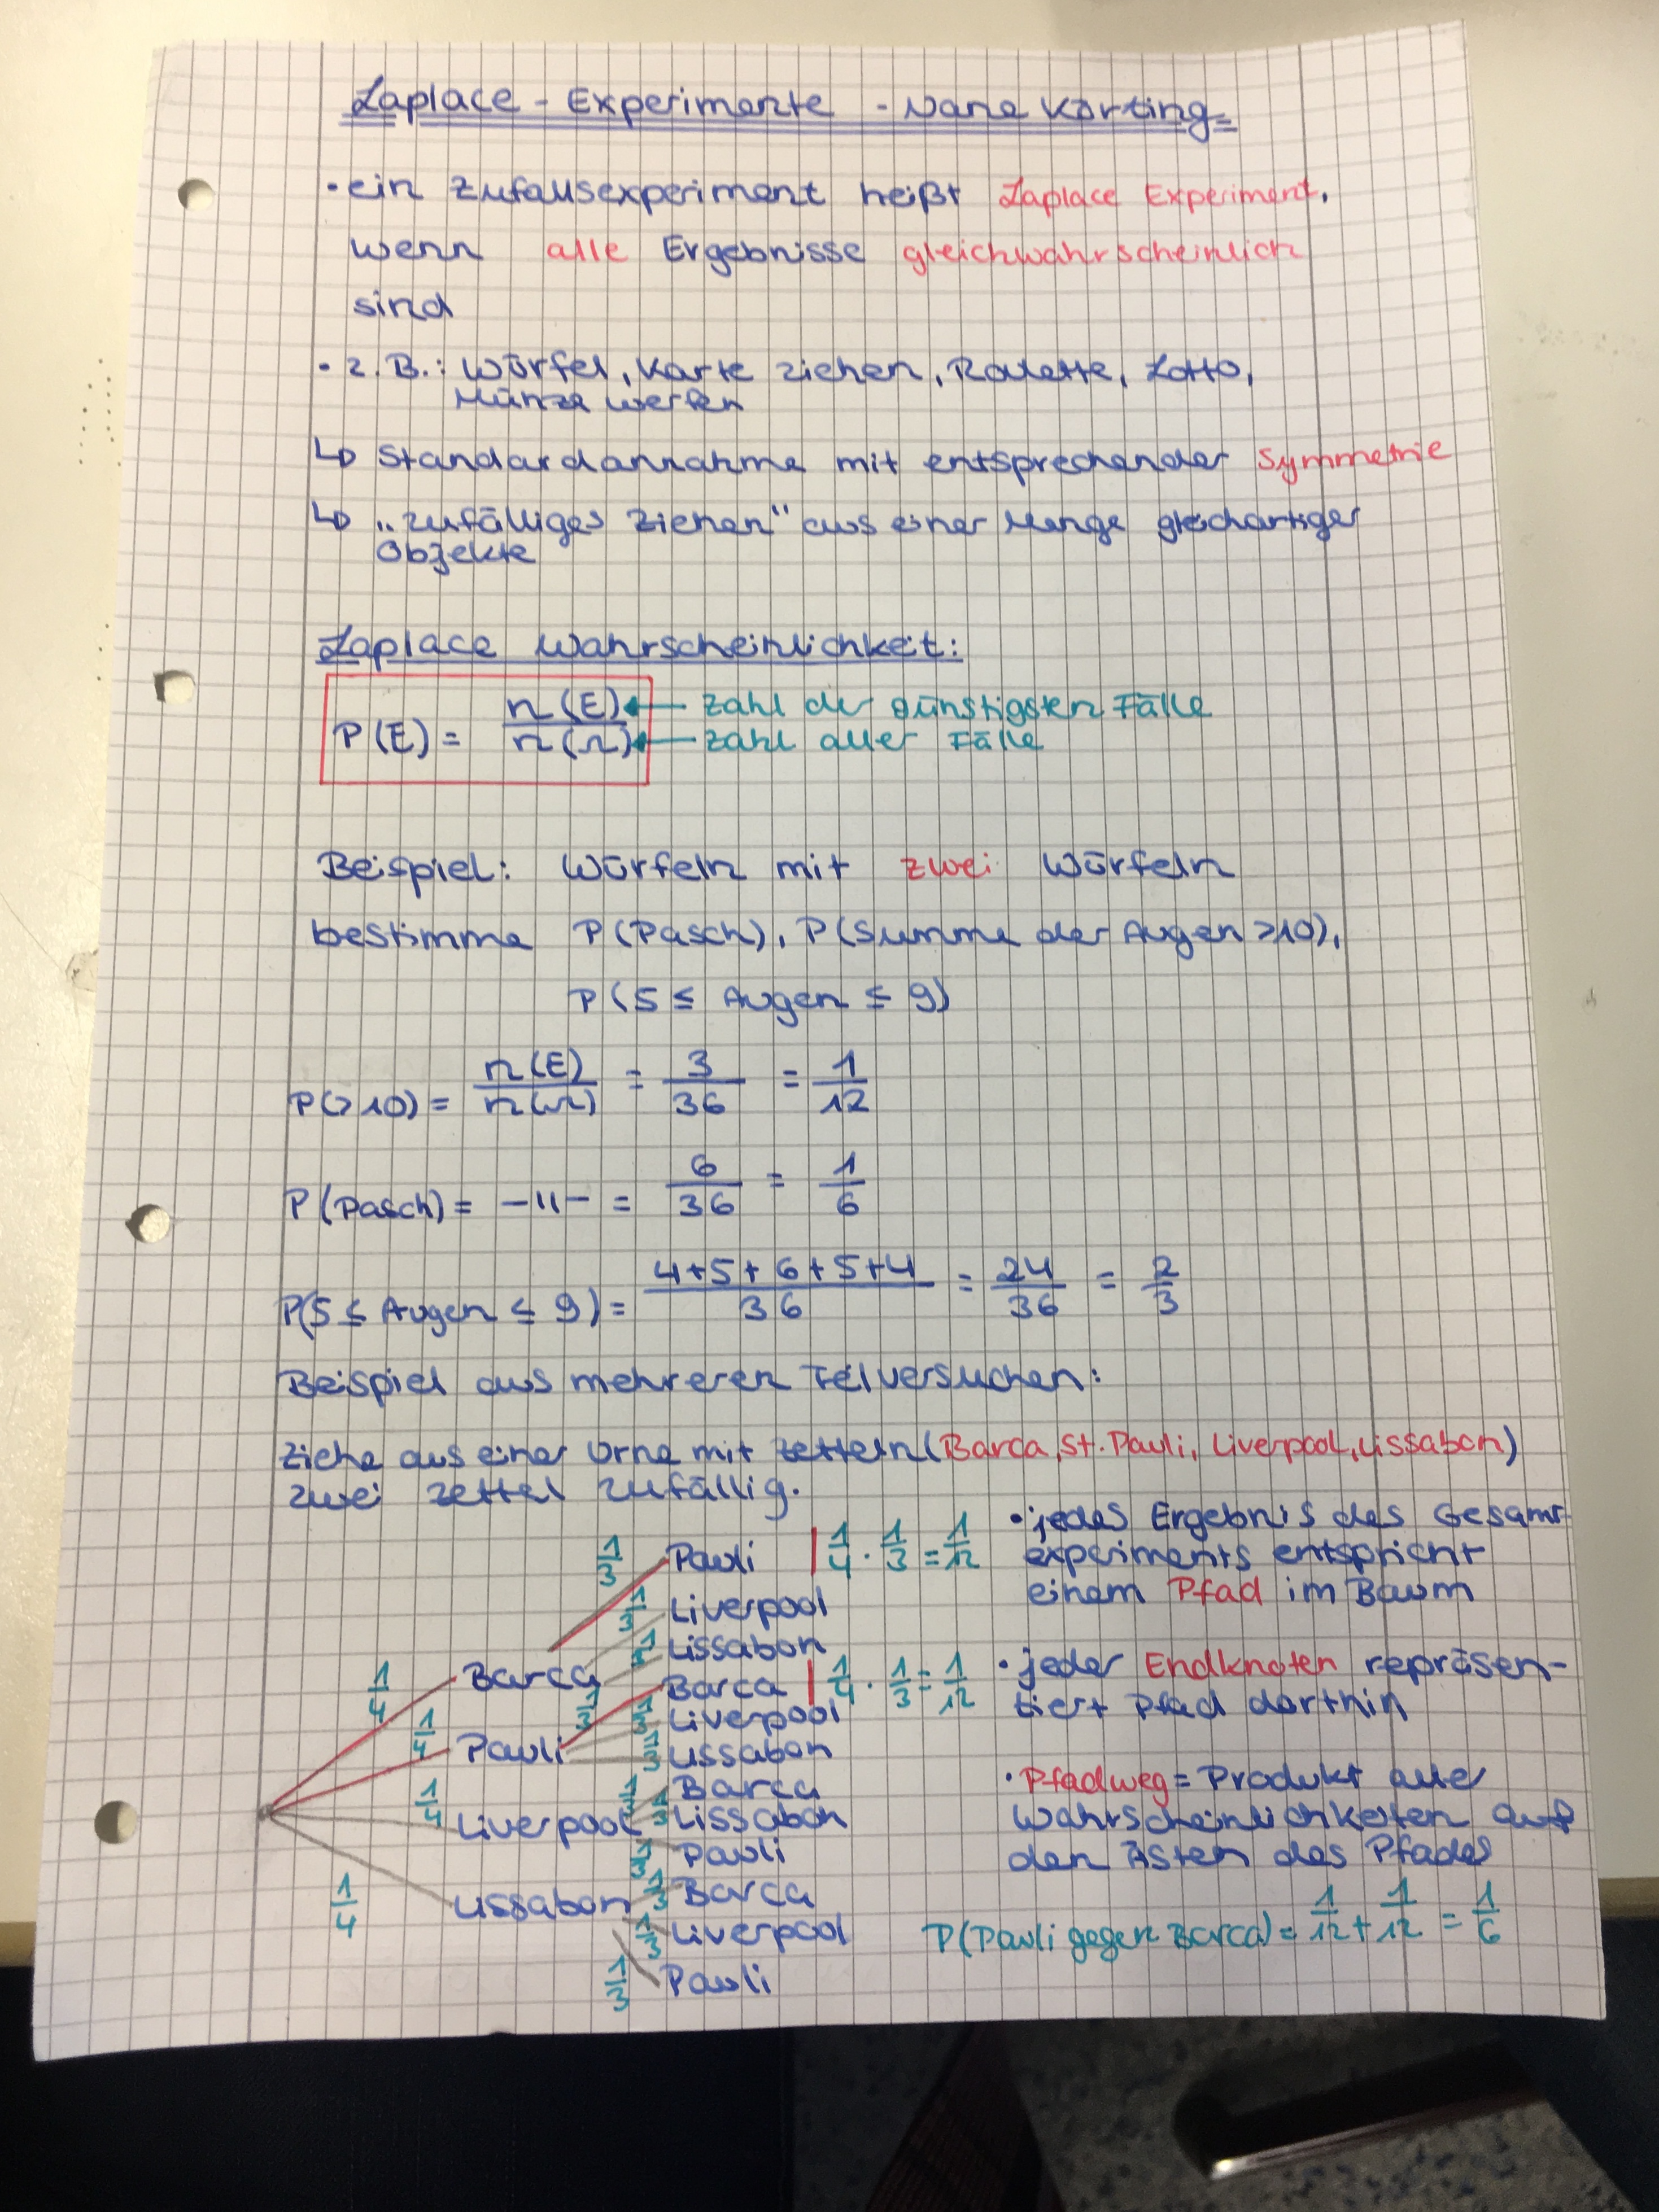 Laplace - Experimente - Nane Körting
• ein Zufallsexperiment heißt Laplace Experiment,
wenn alle Ergebnisse gleichwahrscheinlich
sind
• z.B.: Würfel, Karte ziehen, Roulette, Lotto,
Münze werfen
↳ Standardannahme mit entsprechender Symmetrie
↳ „zufälliges Ziehen" aus einer Menge gleichartiger
Objekte
Laplace Wahrscheinlichkeit:
P(E) = n(E)/n(Ω)
← Zahl der günstigsten Fälle
← Zahl aller Fälle
Beispiel: Würfeln mit zwei Würfeln
bestimme P(Pasch), P(Summe der Augen >10),
P(5 ≤ Augen ≤ 9)
P(>10) = n(E)/n(Ω) = 3/36 = 1/12
P(Pasch) = -11- = 6/36 = 1/6
P(5 ≤ Augen ≤ 9) = 4+5+6+5+4/36 = 24/36 = 2/3
Beispiel aus mehreren Teilversuchen:
Ziehe aus einer Urne mit Zetteln (Barca, St. Pauli, Liverpool, Lissabon)
zwei Zettel zufällig.
1/4 Barca
1/3 Pauli | 1/4 · 1/3 = 1/12
1/3 Liverpool
1/3 Lissabon
1/4 Pauli
1/3 Barca | 1/4 · 1/3 = 1/12
1/3 Liverpool
1/3 Lissabon
1/4 Liverpool
1/3 Barca
1/3 Lissabon
1/3 Pauli
1/4 Lissabon
1/3 Barca
1/3 Liverpool
1/3 Pauli
• jedes Ergebnis des Gesamt-
experiments entspricht
einem Pfad im Baum
• jeder Endknoten repräsen-
tiert Pfad dorthin
• Pfadweg = Produkt aller
Wahrscheinlichkeiten auf
den Ästen des Pfades
P(Pauli gegen Barca) = 1/12 + 1/12 = 1/6